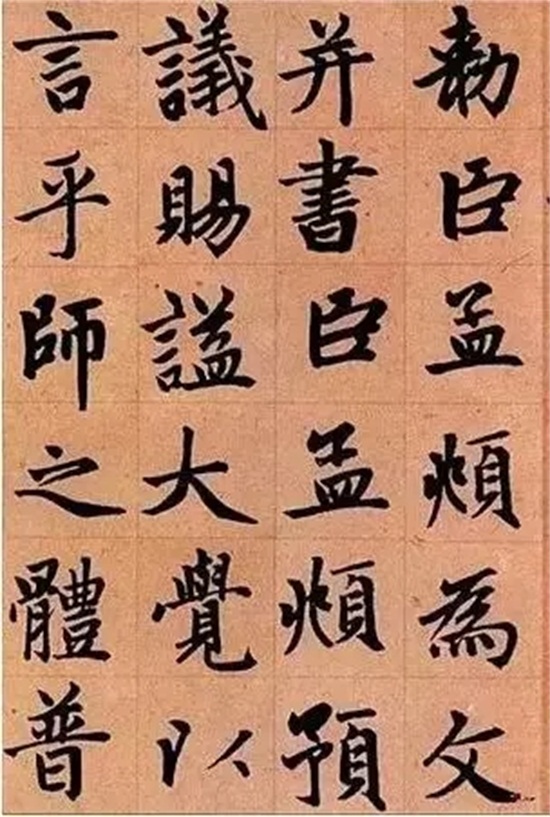 勅臣孟頫為文
并書臣孟頫預
議賜謚大覺以
言乎師之體普